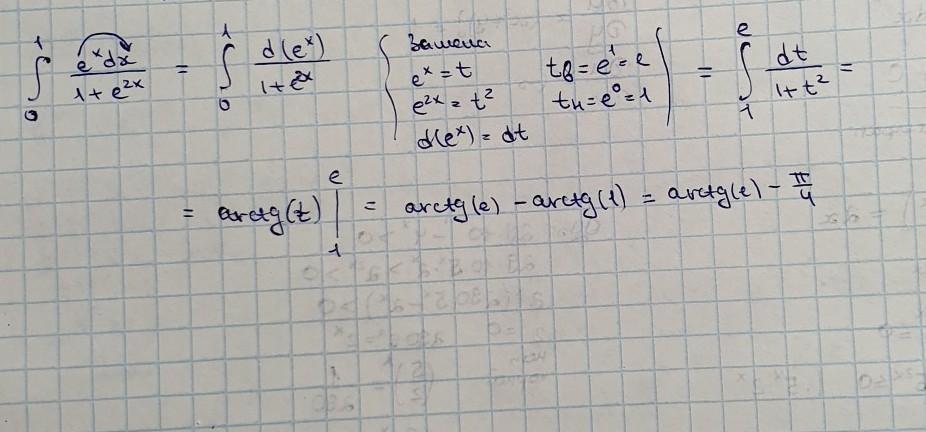 ∫₀¹ eˣdx / (1 + e²ˣ) = ∫₀¹ d(eˣ) / (1 + e²ˣ) { Замена
eˣ = t tв = e¹ = e
e²ˣ = t² tн = e⁰ = 1
d(eˣ) = dt } = ∫₁ᵉ dt / (1 + t²) =
= arctg(t) |₁ᵉ = arctg(e) − arctg(1) = arctg(e) − π/4